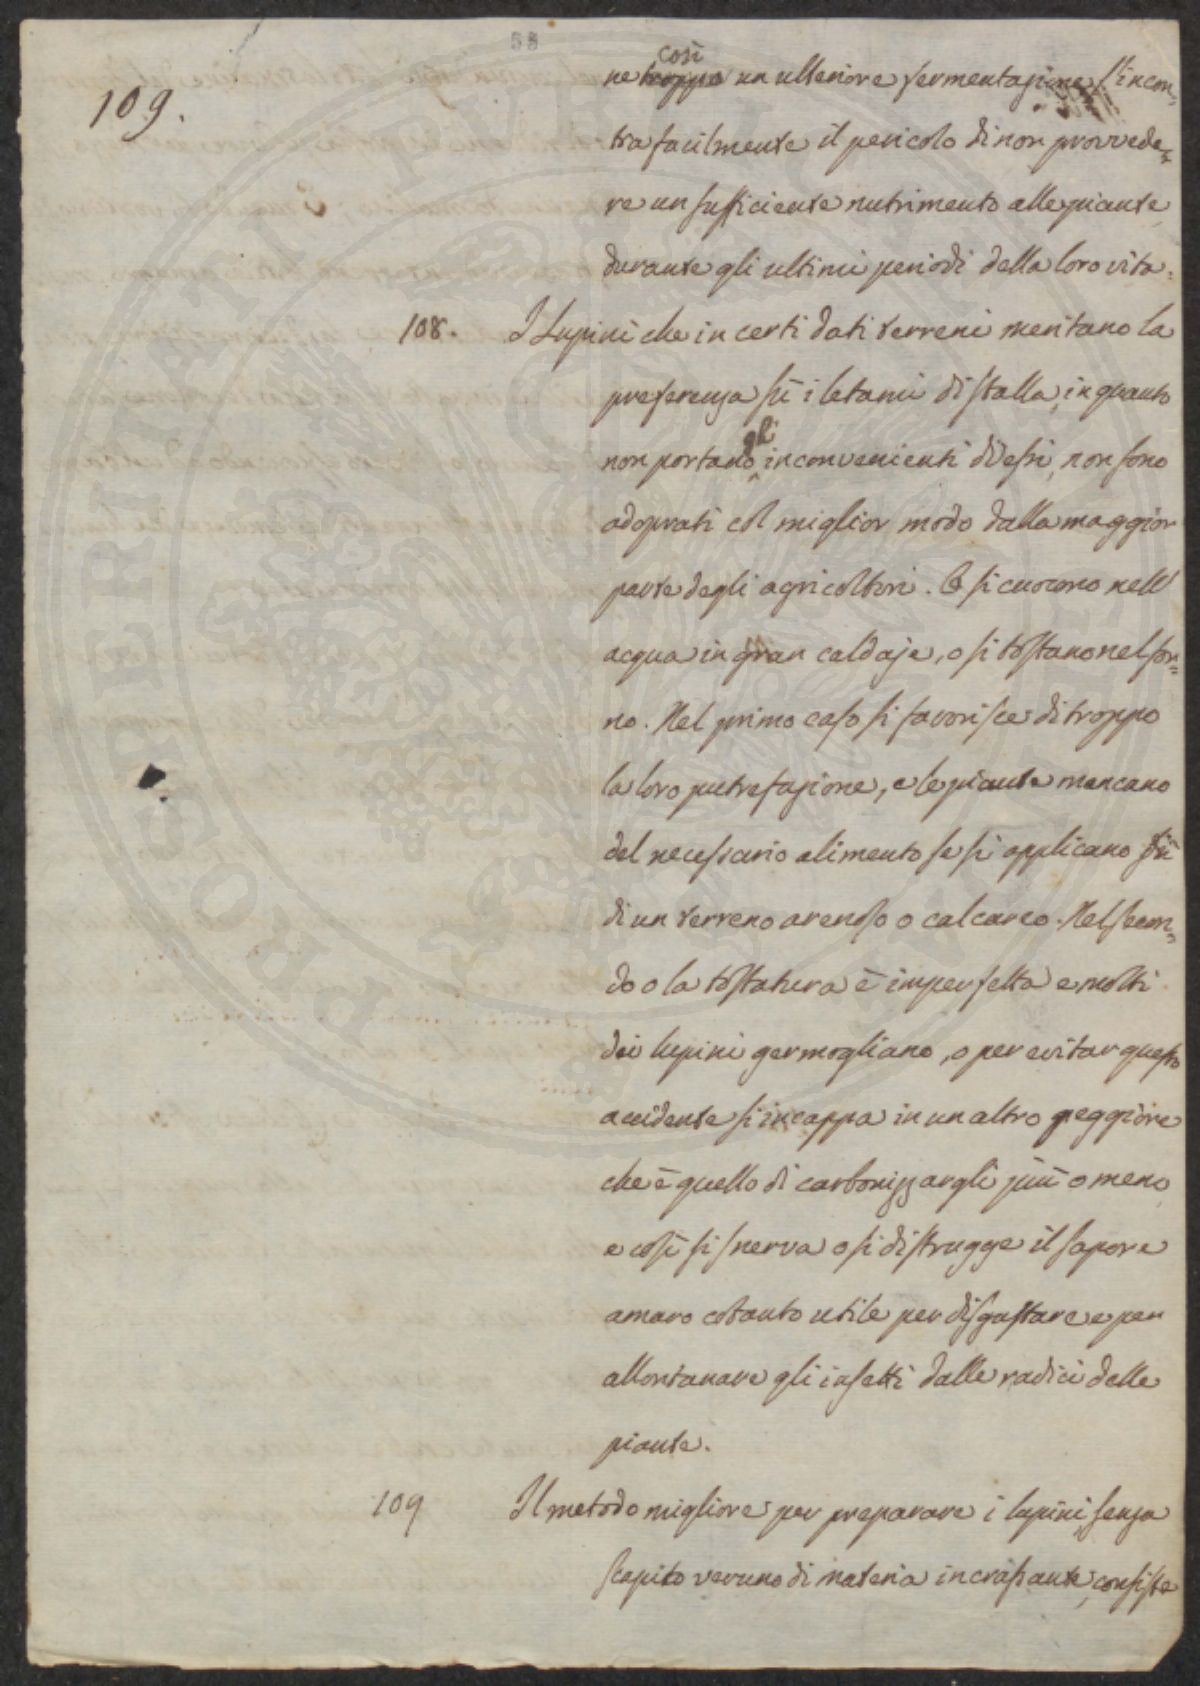 58
109.
così
ne troppo un ulleriore fermentazione s'incon-
tra facilmente il pericolo di non provvede=
re un sufficiente nutrimento alle piante
durante gli ultimi periodi della loro vita.
108. I Lupini che in certi dati terreni meritano la
preferenza sù i letami di stalla, in quanto
gli
non portano inconvenienti di essi, non sono
adoprati col miglior modo dalla maggior
parte degli agricoltori. O si cuocono nell'
acqua in gran caldaje, o si tostano nel for=
no. Nel primo caso si favorisce di troppo
la loro putrefazione, e le piante mancano
del necessario alimento se si applicano sù
di un terreno arenoso o calcareo. Nel secon=
do o la tostatura è imperfetta e molti
dei lupini germogliano, o per evitar questo
accidente si incappa in un altro peggiore
che è quello di carbonizzargli più o meno
e così si snerva o si distrugge il sapore
amaro cotanto utile per disgustare e per
allontanare gli insetti dalle radici delle
piante.
109 Il metodo migliore per preparare i lupini, senza
scapito veruno di materia incrassante, consiste
PROSPERITATI PUBLICAE